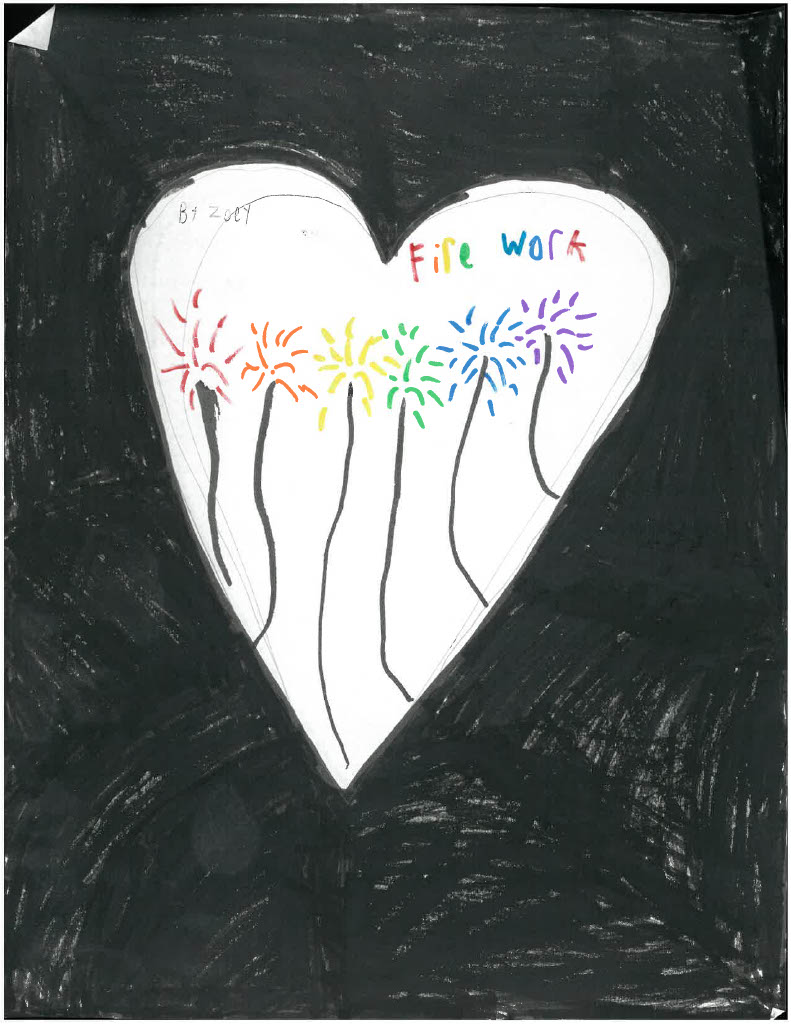 By Zoey
Fire Work